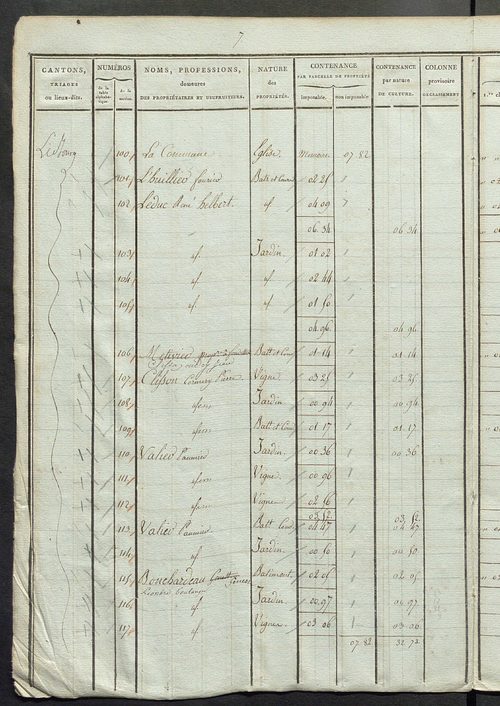 7
CANTONS, TRIAGES ou lieux-dits.
NUMÉROS
de la table alphabétique
de la section.
NOMS, PROFESSIONS, demeures DES PROPRIÉTAIRES ET USUFRUITIERS.
NATURE des PROPRIÉTÉS.
CONTENANCE PAR PARCELLE DE PROPRIÉTÉ
imposable.
non imposable.
CONTENANCE par nature DE CULTURE.
COLONNE provisoire DE CLASSEMENT
Le Bourg 100 La Commune Eglise. Memoire 07 82
101 L'huillier Batt et Cour 02 25
102 Leduc René 04 09
06 34 06 34
103 id Jardin 01 02
104 id id 02 44
105 id id 01 50
04 96 04 96
106 Métivier Batt et Cour 01 14 01 14
107 Pierre Vigne 03 25 03 25
108 idem Jardin 00 94 00 94
109 idem Batt et Cour 01 17 01 17
110 Jardin. 00 36 00 36
111 idem Vigne 00 96
112 idem Vigne 02 56
03 52 03 52
113 Batt Cour 04 47 04 47
114 id Jardin. 00 50 00 50
115 Bouchardeau Batiment, 02 05 02 05
Léonard boulanger
116 id Jardin. 00 97 00 97
117 id Vigne 03 06 03 06
07 82 32 72